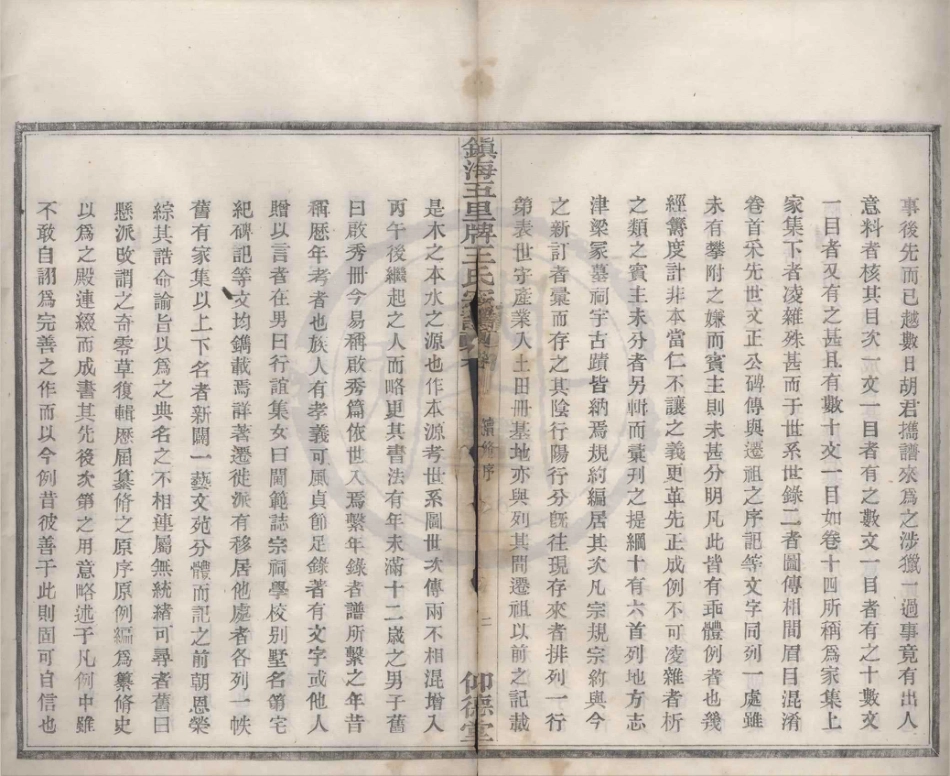 事後先而已越數日胡君攜譜來爲之涉獵一過事竟有出人
意料者核其目次一成文一目者有之數文一目者有之十數文
一目者又有之甚且有數十文一目如卷十四所稱爲家集上
家集下者凌雜殊甚而于世系世錄二者圖傳相間眉目混淆
卷首采先世文正公碑傳與遷祖之序記等文字同列一處雖
未有攀附之嫌而賓主則未甚分明凡此皆有乖體例者也幾
經籌度計非本當仁不讓之義更革先正成例不可凌雜者析
之類之賓主未分者另輯而彙刊之提綱十有六首列地方志
津梁冢墓祠宇古蹟皆納焉規約編居其次凡宗規宗約與今
之新訂者彙而存之其陰行陽行分旣往現存來者排列一行
第表世守產業入土田冊基地亦與列其間遷祖以前之記載
鎮海五里牌王氏宗譜 續修序 三 仰德堂
是木之本水之源也作本源考世系圖世次傳兩不相混增入
丙午後繼起之人而略更其書法有年未滿十二歲之男子舊
曰啟秀冊今易稱啟秀篇依世入焉繫年錄者譜所繫之年昔
稱歷年考者也族人有孝義可風貞節足錄著有文字或他人
贈以言者在男曰行誼集女曰閫範誌宗祠學校别墅名第宅
紀碑記等文均鐫載焉詳著遷徙派有移居他處者各列一帙
舊有家集以上下名者新闢一藝文苑分體而記之前朝恩榮
綜其誥命諭旨以爲之典名之不相連屬無統緒可尋者舊曰
懸派改謂之奇零草復輯歷屆纂脩之原序原例編爲纂脩史
以爲之殿連綴而成書其先後次第之用意略述于凡例中雖
不敢自詡爲完善之作而以今例昔彼善于此則固可自信也